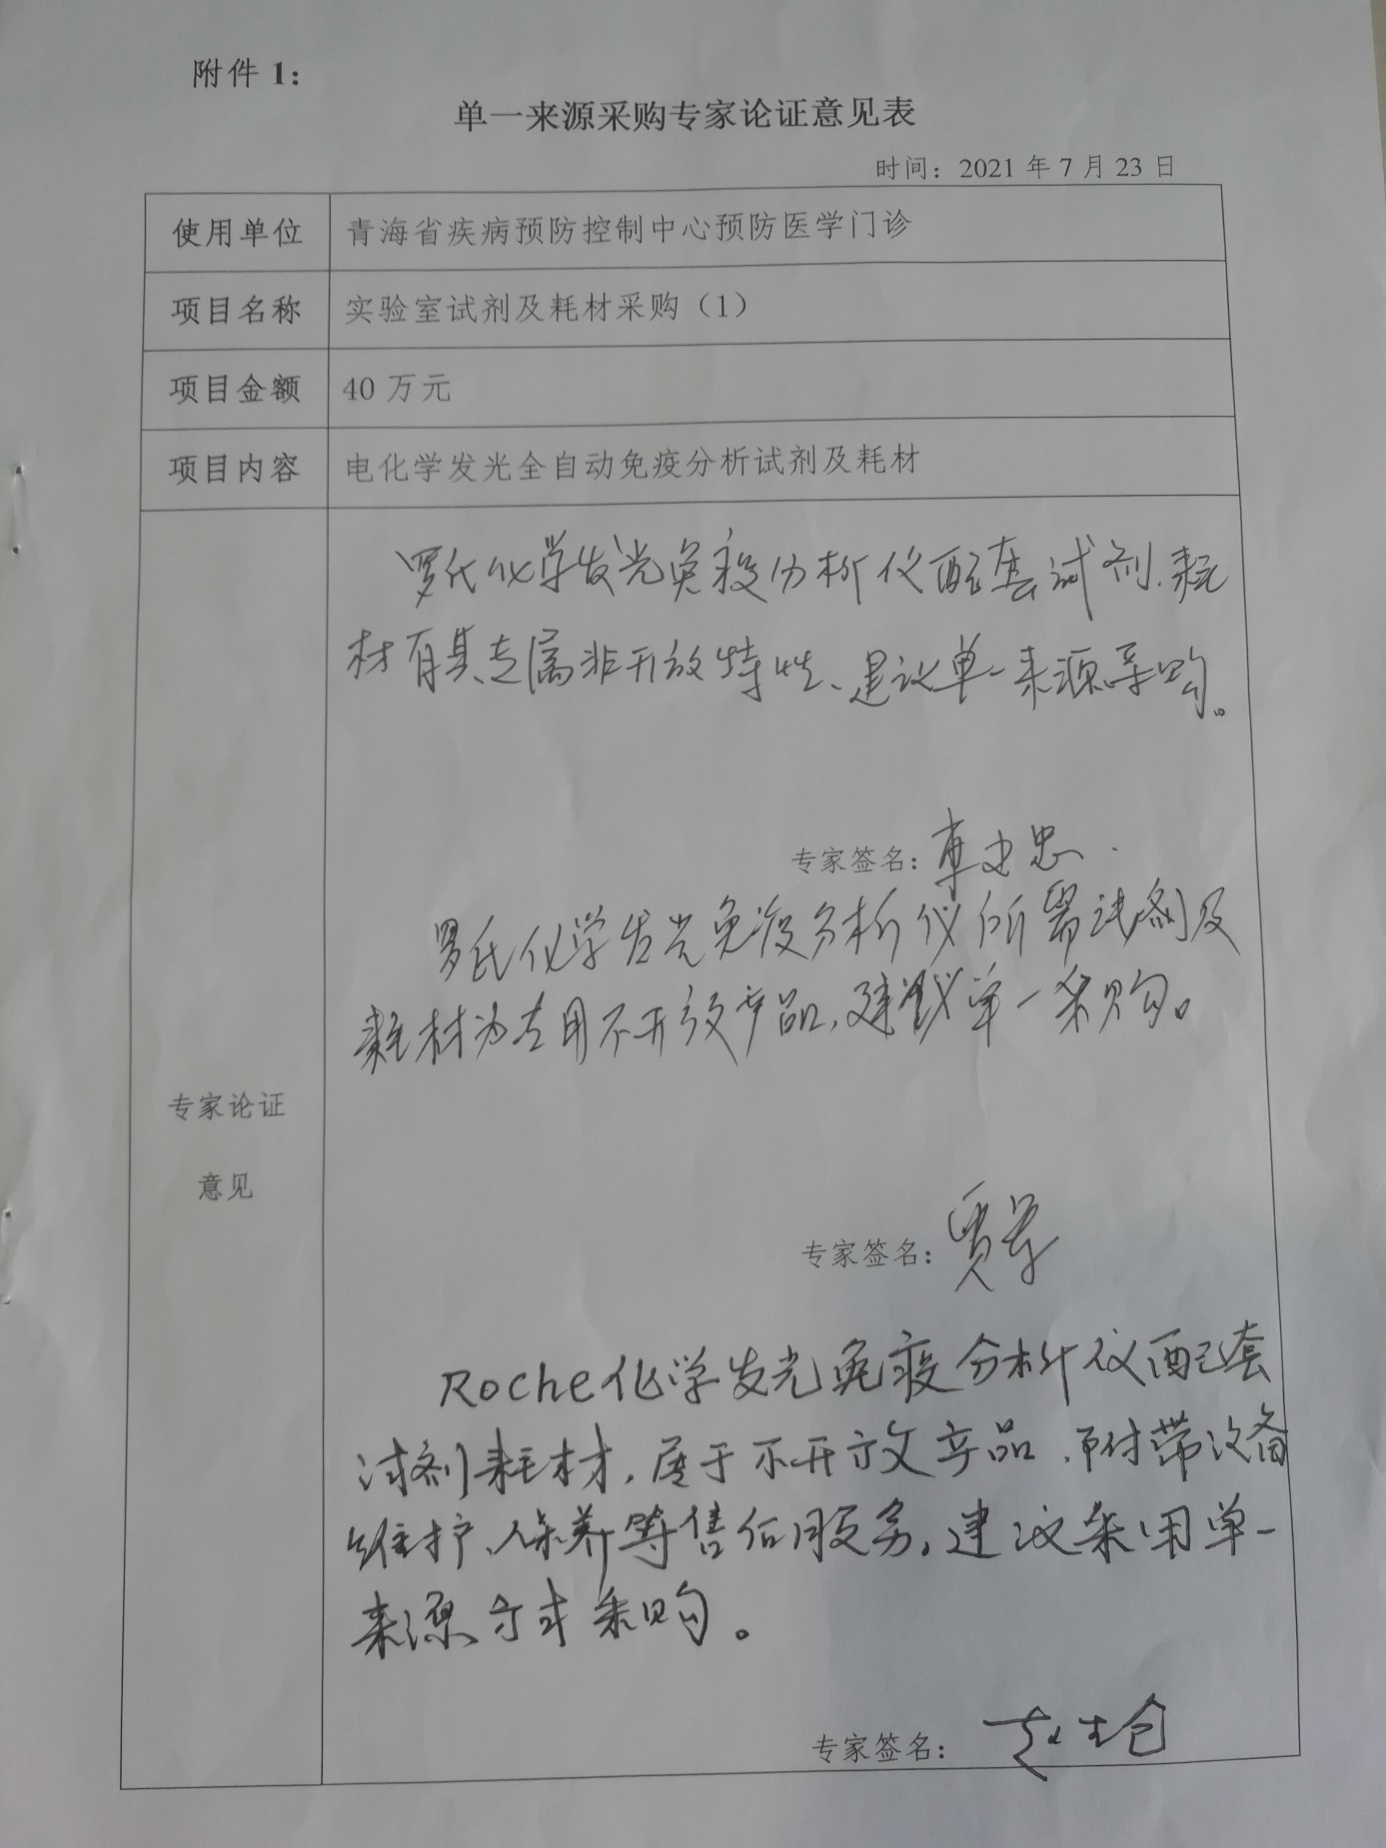 附件 1:
单一来源采购专家论证意见表
时间: 2021 年 7 月 23 日
使用单位 青海省疾病预防控制中心预防医学门诊
项目名称 实验室试剂及耗材采购（1）
项目金额 40 万元
项目内容 电化学发光全自动免疫分析试剂及耗材
罗氏化学发光免疫分析仪配套试剂、耗
材有其专属非开放特性、建议单一来源采购。
专家签名:
罗氏化学发光免疫分析仪所需试剂及
耗材为专用不开放产品,建议单一采购。
专家论证
意见
专家签名:
Roche化学发光免疫分析仪配套
试剂耗材,属于不开放产品,附带设备
维护、保养等售后服务,建议采用单一
来源方式采购。
专家签名: